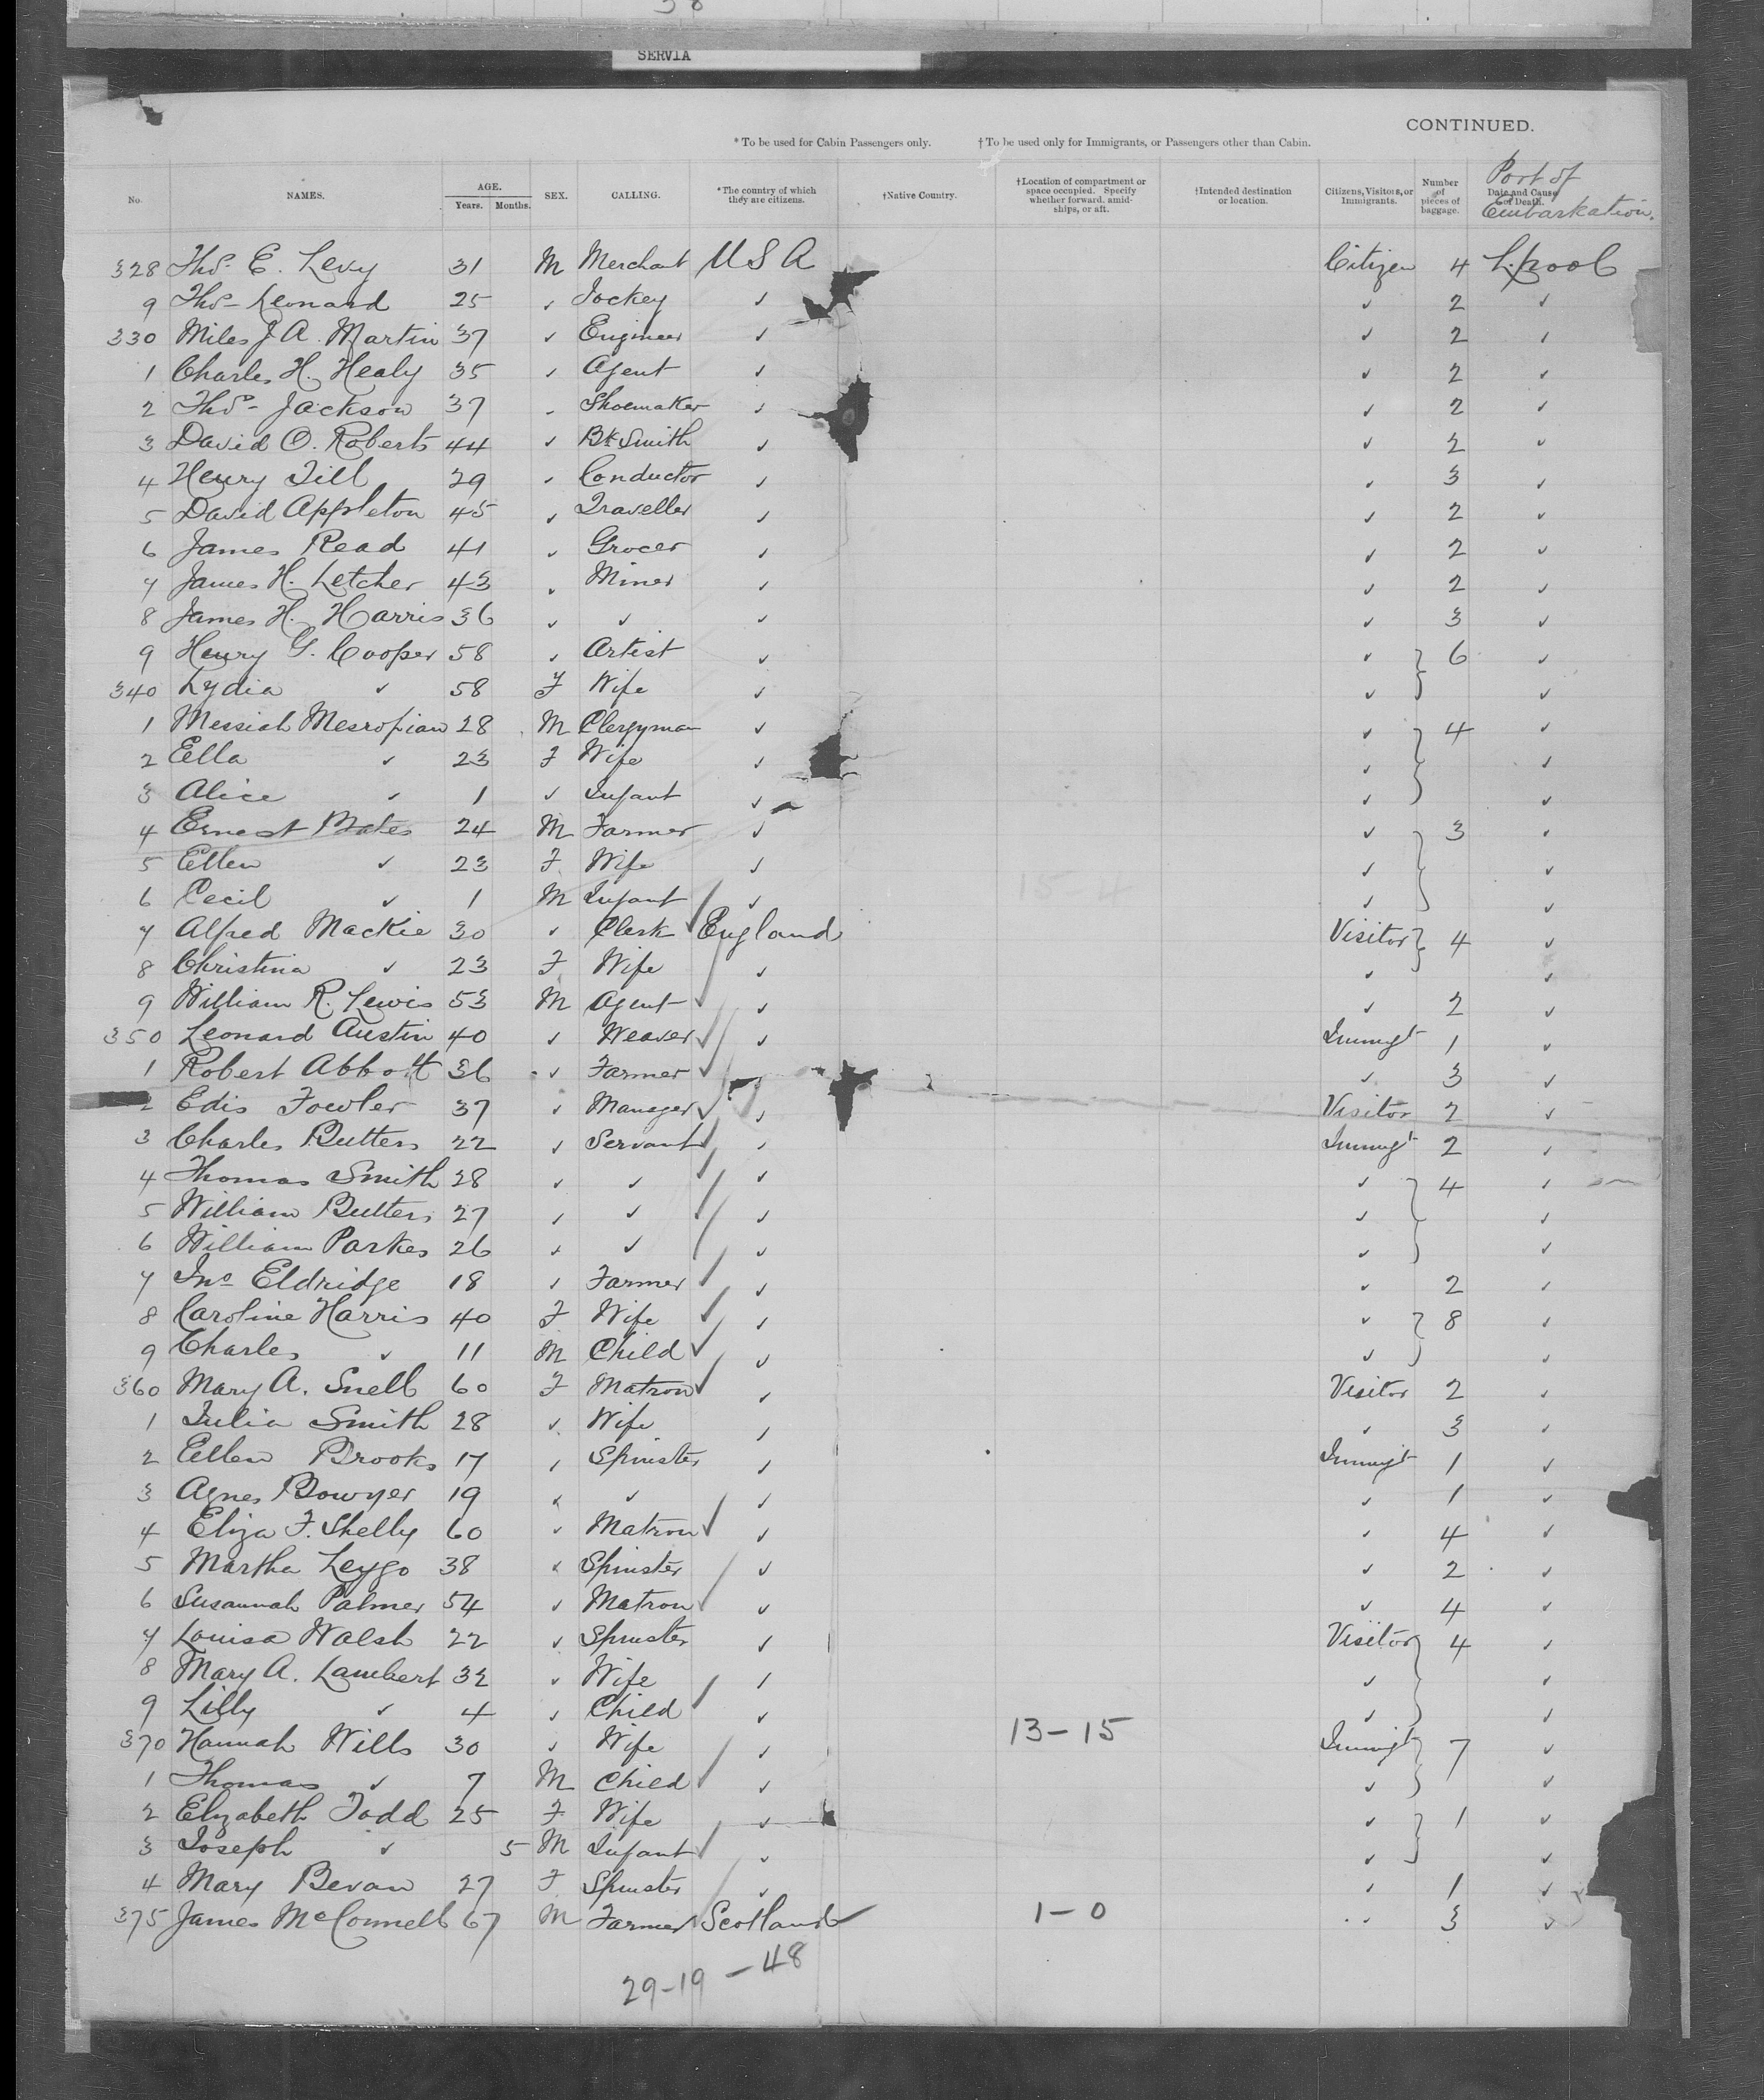 SERVIA
CONTINUED.
* To be used for Cabin Passengers only. † To be used only for Immigrants, or Passengers other than Cabin.
No. NAMES. AGE. Years. Months. SEX. CALLING. *The country of which they are citizens. †Native Country. †Location of compartment or space occupied. Specify whether forward, amidships, or aft. †Intended destination or location. Citizens, Visitors, or Immigrants. Number of pieces of baggage. Date and Cause of Death. Port of Embarkation.
328 Thos. E. Levy 31 M Merchant U S A Citizen 4 L.pool
9 Thos Leonard 25 ✓ Jockey ✓ ✓ 2 ✓
330 Miles J A. Martin 37 ✓ Engineer ✓ ✓ 2 ✓
1 Charles H. Healy 35 ✓ Agent ✓ ✓ 2 ✓
2 Thos Jackson 37 ✓ Shoemaker ✓ ✓ 2 ✓
3 David O. Roberts 44 ✓ Bk Smith ✓ ✓ 2 ✓
4 Henry Till 29 ✓ Conductor ✓ ✓ 3 ✓
5 David Appleton 45 ✓ Traveller ✓ ✓ 2 ✓
6 James Read 41 ✓ Grocer ✓ ✓ 2 ✓
7 James H. Letcher 43 ✓ Miner ✓ ✓ 2 ✓
8 James H. Harris 36 ✓ ✓ ✓ ✓ 3 ✓
9 Henry G. Cooper 58 ✓ Artist ✓ ✓ 6 ✓
340 Lydia ✓ 58 F Wife ✓ ✓ ✓
1 Messiah Mesropian 28 M Clergyman ✓ ✓ 4 ✓
2 Ella ✓ 23 F Wife ✓ ✓ ✓
3 Alice ✓ 1 ✓ Infant ✓ ✓ ✓
4 Ernest Bates 24 M Farmer ✓ ✓ 3 ✓
5 Ellen ✓ 23 F Wife ✓ ✓ ✓
6 Cecil ✓ 1 M Infant ✓ ✓ ✓
7 Alfred Mackie 30 ✓ Clerk England Visitor 4 ✓
8 Christina ✓ 23 F Wife ✓ ✓ ✓
9 William R. Lewis 53 M Agent ✓ ✓ 2 ✓
350 Leonard Austin 40 ✓ Weaver ✓ Immigt 1 ✓
1 Robert Abbott 36 ✓ Farmer ✓ 3 ✓
2 Edis Fowler 37 ✓ Manager ✓ Visitor 2 ✓
3 Charles Butters 22 ✓ Servant ✓ Immigt 2 ✓
4 Thomas Smith 28 ✓ ✓ ✓ ✓ 4 ✓
5 William Butters 27 ✓ ✓ ✓ ✓ ✓
6 William Parkes 26 ✓ ✓ ✓ ✓ ✓
7 Jno Eldridge 18 ✓ Farmer ✓ ✓ 2 ✓
8 Caroline Harris 40 F Wife ✓ ✓ 8 ✓
9 Charles ✓ 11 M Child ✓ ✓ ✓
360 Mary A. Snell 60 F Matron ✓ Visitor 2 ✓
1 Julia Smith 28 ✓ Wife ✓ ✓ 3 ✓
2 Ellen Brooks 17 ✓ Spinster ✓ Immigt 1 ✓
3 Agnes Bowyer 19 ✓ ✓ ✓ ✓ 1 ✓
4 Eliza F. Shelly 60 ✓ Matron ✓ ✓ 4 ✓
5 Martha Leygo 38 ✓ Spinster ✓ ✓ 2 ✓
6 Susannah Palmer 54 ✓ Matron ✓ ✓ 4 ✓
7 Louisa Walsh 22 ✓ Spinster ✓ Visitor 4 ✓
8 Mary A. Lambert 32 ✓ Wife ✓ ✓ ✓
9 Lilly ✓ 4 ✓ Child ✓ ✓ ✓
370 Hannah Wills 30 ✓ Wife ✓ 13-15 Immigt 7 ✓
1 Thomas ✓ 7 M Child ✓ ✓ ✓
2 Elizabeth Todd 25 F Wife ✓ ✓ 1 ✓
3 Joseph ✓ 5 M Infant ✓ ✓ ✓
4 Mary Bevan 27 F Spinster ✓ ✓ 1 ✓
375 James McConnell 67 M Farmer Scotland 1-0 ✓ 3 ✓
29-19-48